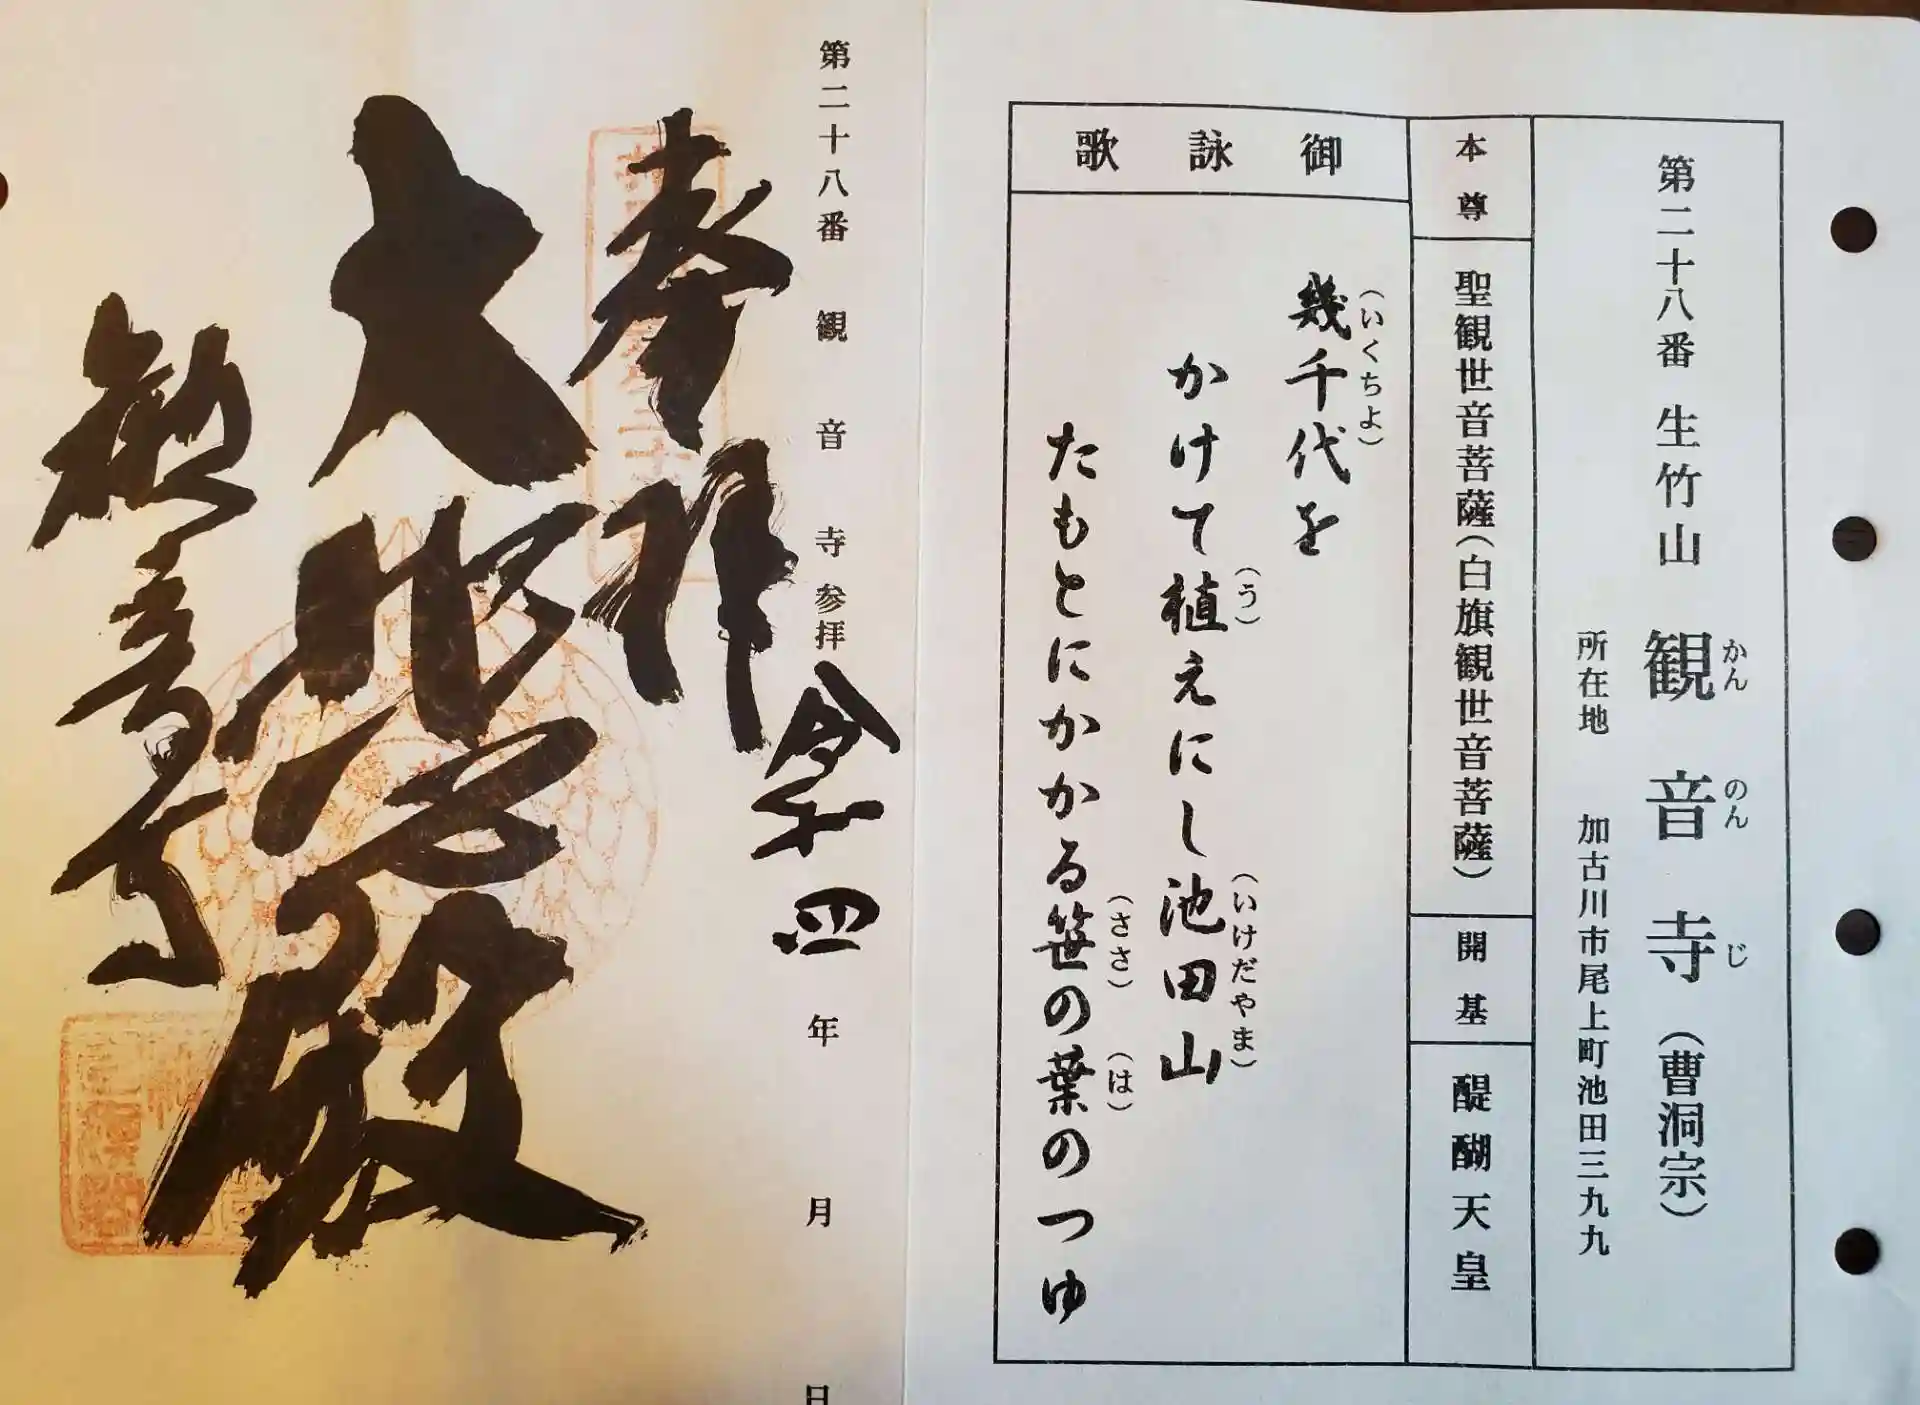 第二十八番 生竹山 観音寺(曹洞宗)
かんのんじ
所在地 加古川市尾上町池田三九九
本尊
聖観世音菩薩(白旗観世音菩薩)
開基
醍醐天皇
御詠歌
幾千代を
(いくちよ)
かけて植えにし池田山
(う) (いけだやま)
たもとにかかる笹の葉のつゆ
(ささ) (は)
第二十八番 観音寺参拝 令和四年 月 日
奉拝
大悲殿
観音寺